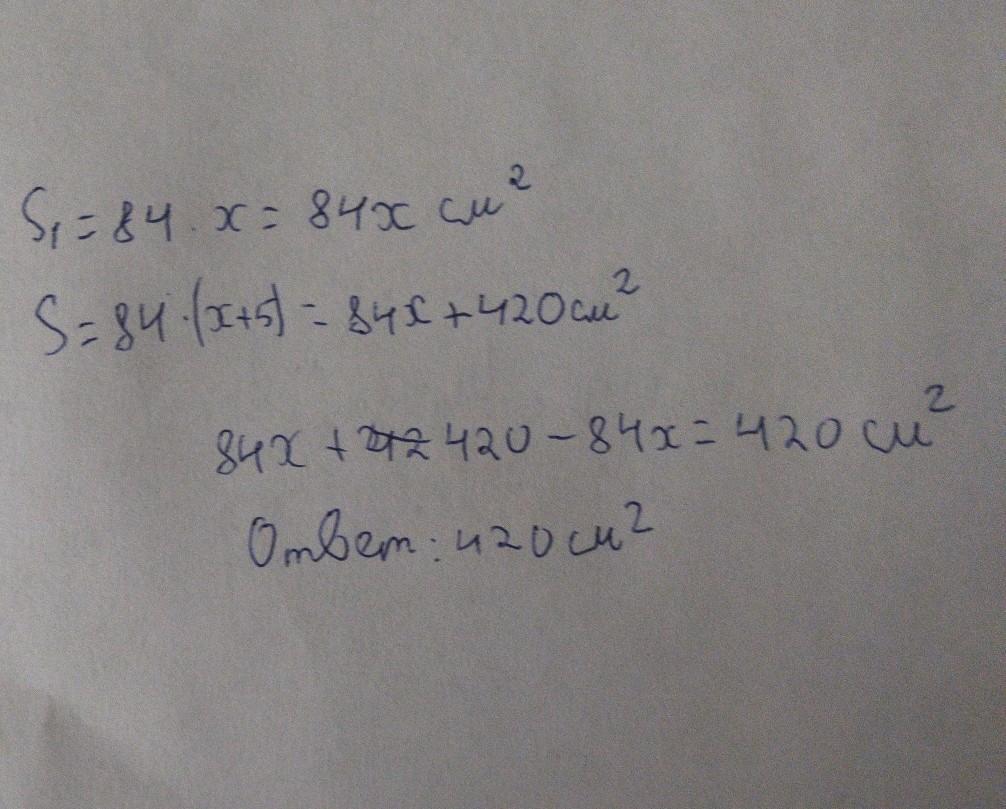 S₁ = 84 · x = 84x см²
S = 84 · (x+5) = 84x + 420 см²
84x + 420 − 84x = 420 см²
Ответ: 420 см²